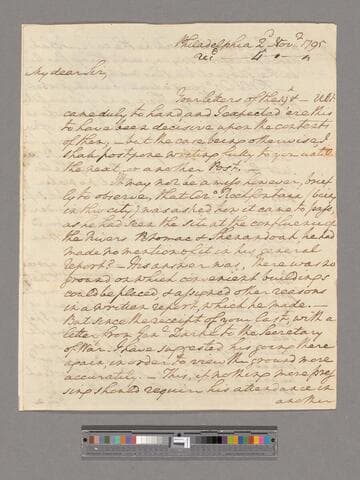 Philadelphia 2d. Novr. 1795
My dear Sir,
Your letters of the & Ult.
came duly to hand and I expected ere this
to have been decisive upon the contents
of them, — but the case being otherwise, I
shall postpone writing fully to you until
the next, or another Post. —
It may not be amiss however, brief
ly to observe, that Colo. Rochfontaine being
in this city, was asked how it came to pass,
as he had seen the site at the confluence of
the Rivers Potomac & Shenandoah he had
made no mention of it in his general
report? — His answer was, there was no
ground on which convenient buildings
could be placed & assigned other reasons
in a written report, which he made. —
But since the receipt of your last, with a
letter from Genl. Darke to the Secretary
of War, I have suggested his going there
again, in order to view the ground more
accurately. — This, if nothing more pres
sing should require his attendance in
another